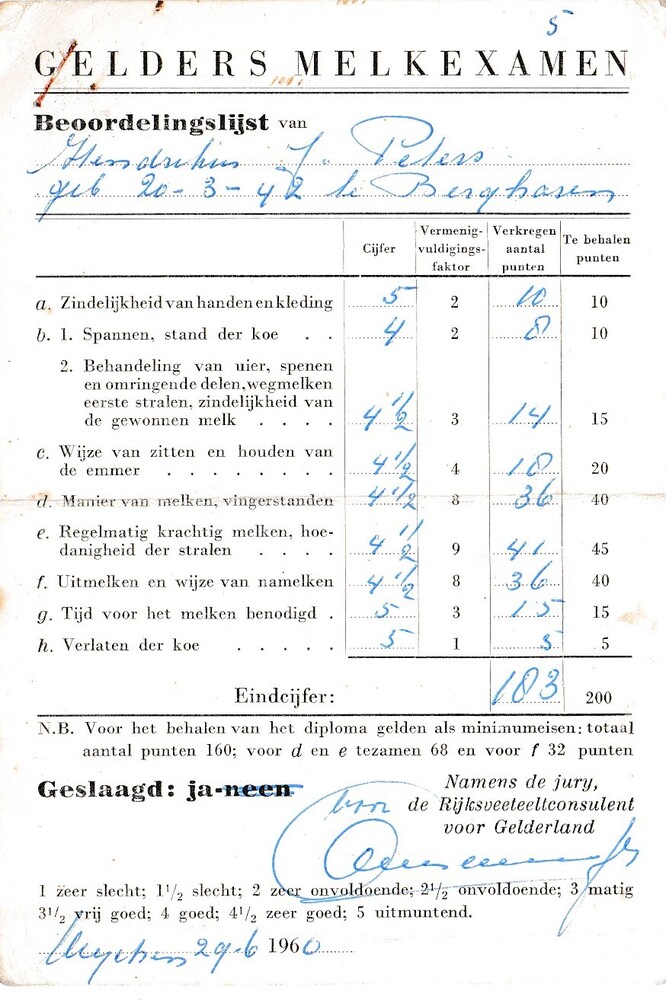 5
GELDERS MELKEXAMEN
Beoordelingslijst van
Hendrikus J. Peters
geb 20-3-42 te Berghasen
Cijfer Vermenig-vuldigings-faktor Verkregen aantal punten Te behalen punten
a. Zindelijkheid van handen en kleding 5 2 10 10
b. 1. Spannen, stand der koe . . 4 2 8 10
2. Behandeling van uier, spenen
en omringende delen, wegmelken
eerste stralen, zindelijkheid van
de gewonnen melk . . . . 4 1/2 3 14 15
c. Wijze van zitten en houden van
de emmer . . . . . . . 4 1/2 4 18 20
d. Manier van melken, vingerstanden 4 1/2 8 36 40
e. Regelmatig krachtig melken, hoe-
danigheid der stralen . . . . 4 1/2 9 41 45
f. Uitmelken en wijze van namelken 4 1/2 8 36 40
g. Tijd voor het melken benodigd . 5 3 15 15
h. Verlaten der koe . . . . . 5 1 5 5
Eindcijfer: 183 200
N.B. Voor het behalen van het diploma gelden als minimumeisen: totaal
aantal punten 160; voor d en e tezamen 68 en voor f 32 punten
Geslaagd: ja-neen
Namens de jury,
voor de Rijksveeteeltconsulent
voor Gelderland
1 zeer slecht; 1 1/2 slecht; 2 zeer onvoldoende; 2 1/2 onvoldoende; 3 matig
3 1/2 vrij goed; 4 goed; 4 1/2 zeer goed; 5 uitmuntend.
29-6 1960